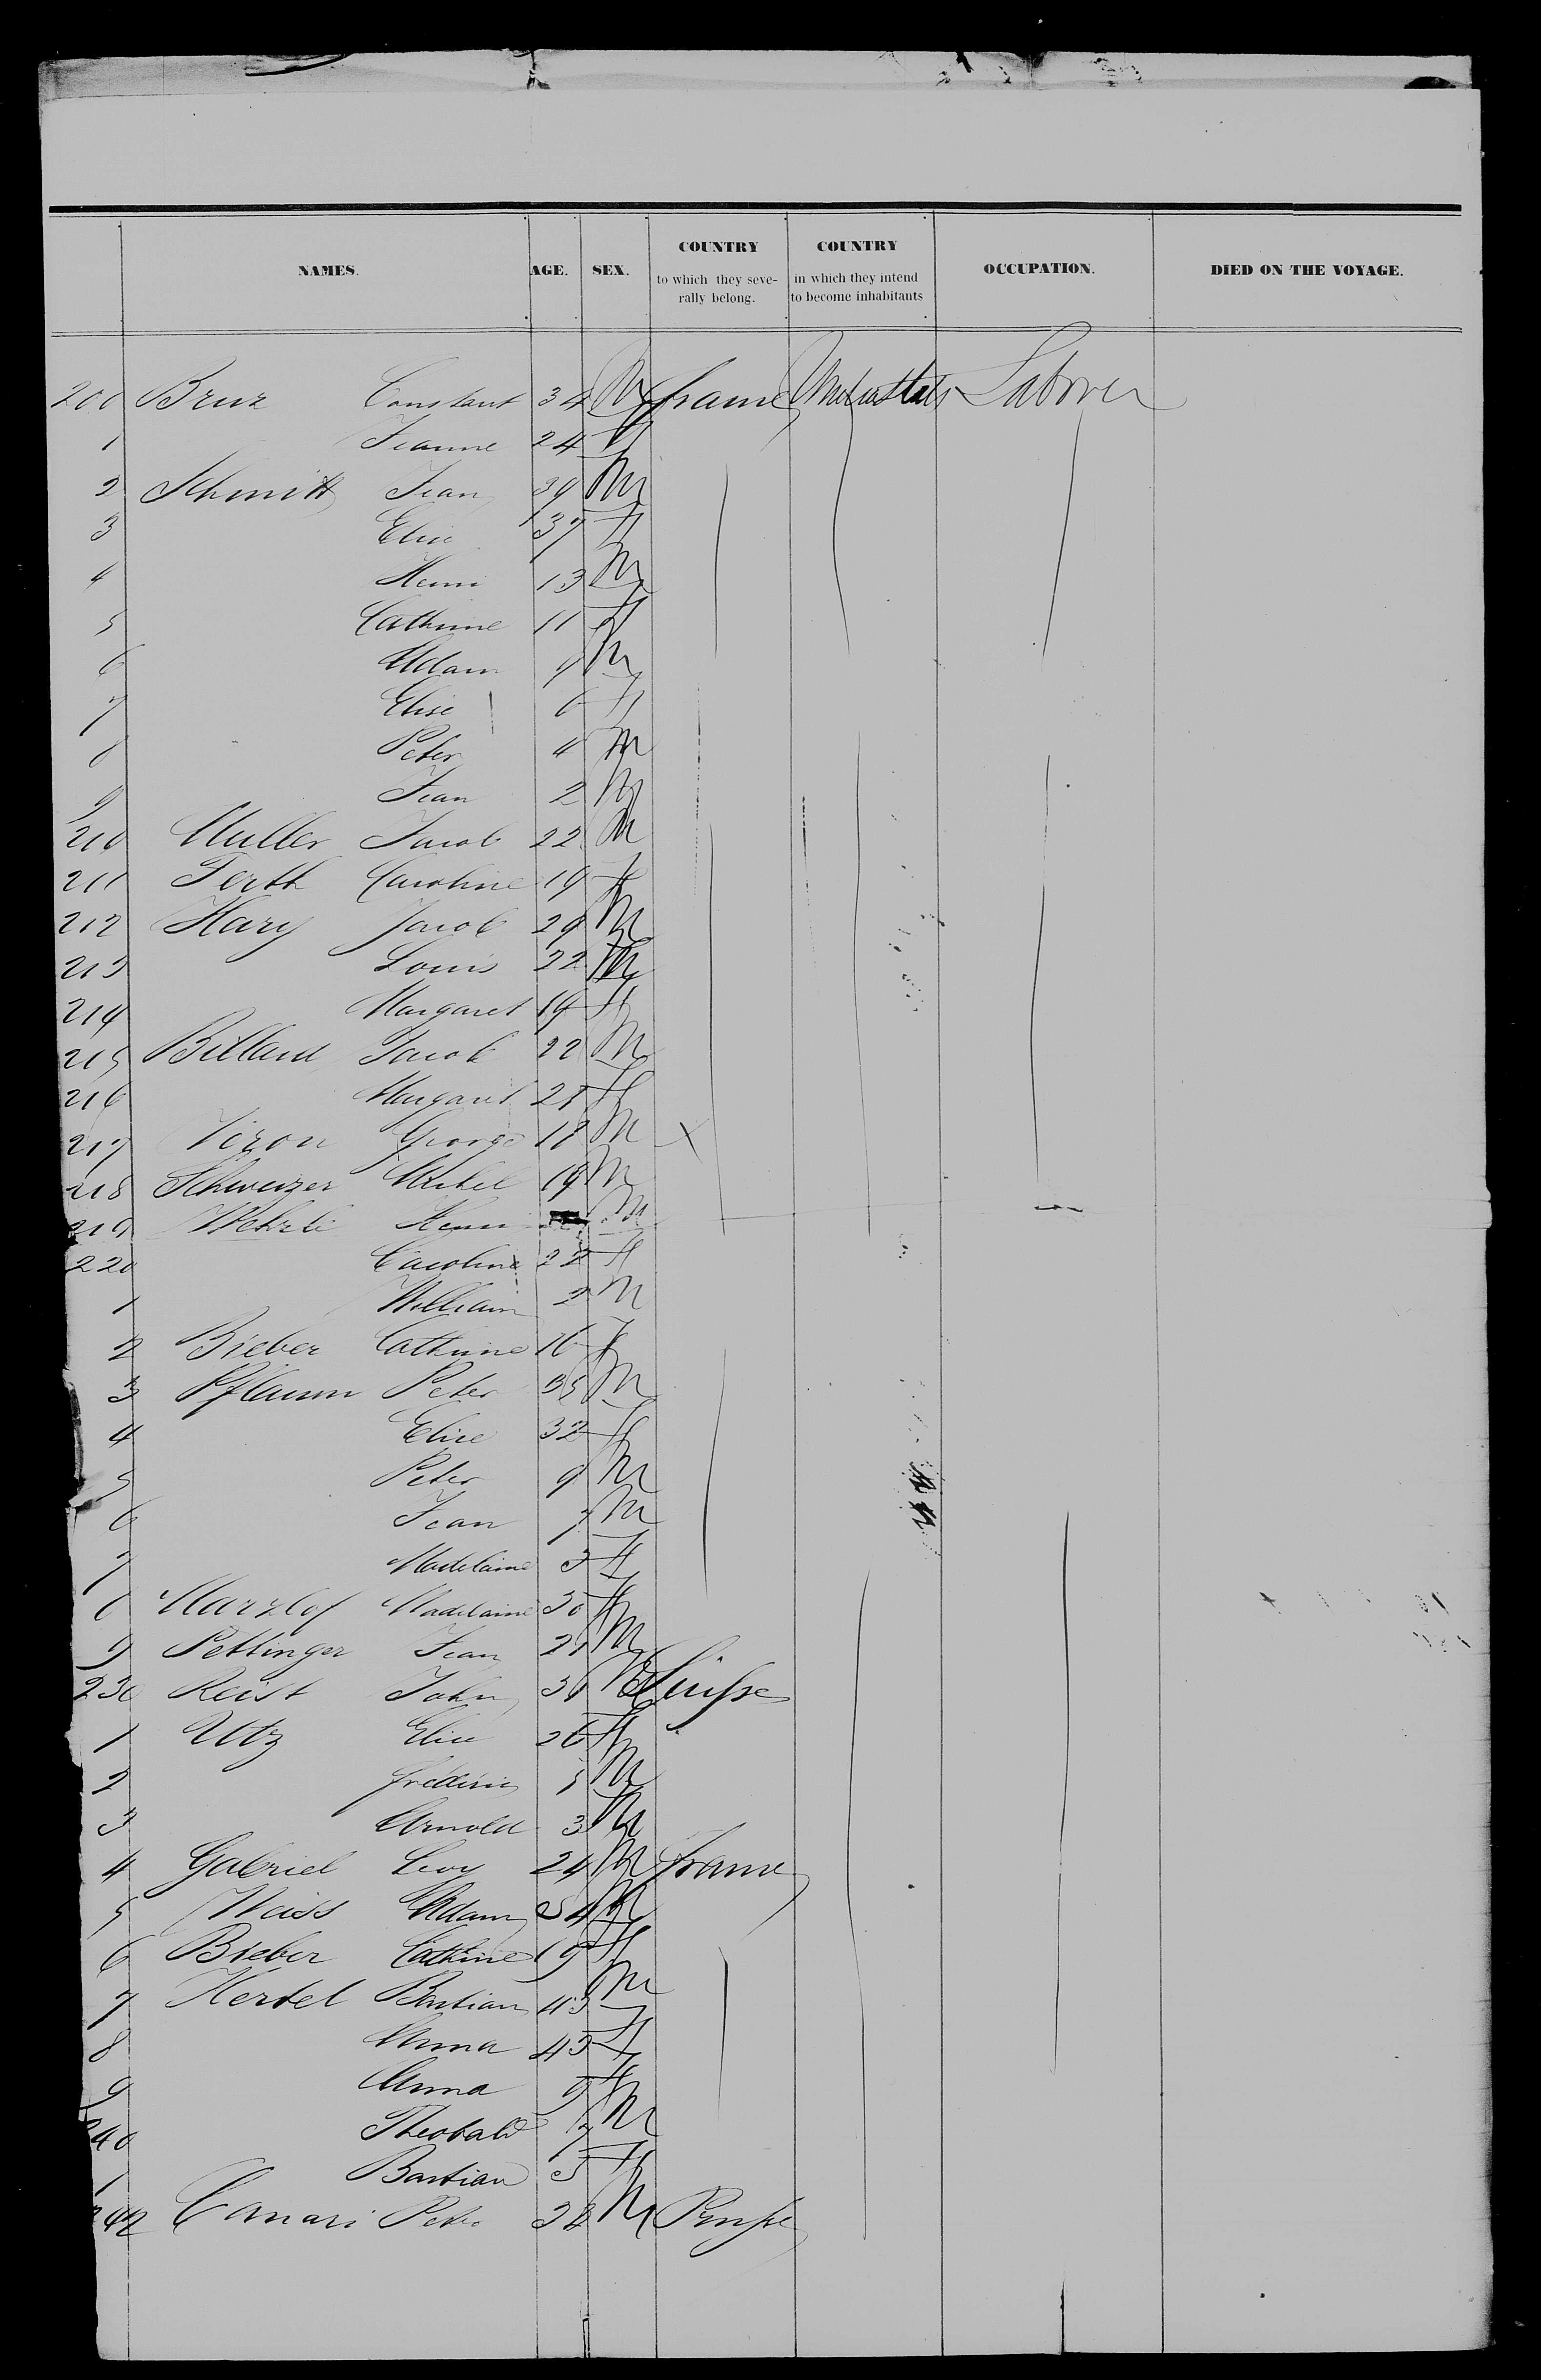 NAMES. AGE. SEX. COUNTRY to which they seve-rally belong. COUNTRY in which they intend to become inhabitants OCCUPATION. DIED ON THE VOYAGE.
200 Bruz Constant 34 M france Unitedstates Labover
1 Jeanne 24 f
2 Schmitt Jean 39 M
3 Elise 37 f
4 Henri 13 M
5 Cathrine 11 f
6 Adam 9 M
7 Elise 6 f
8 Peter 4 M
9 Jean 2 M
210 Muller Jacob 22 M
211 Ferth Caroline 19 f
212 Hary Jacob 29 M
213 Louis 22 M
214 Margaret 19 f
215 Billaud Jacob 22 M
216 Margaret 21 f
217 Viron George 18 M X
218 Schweizer Michel 19 M
219 Wehrle Henri M
220 Caroline 22 f
1 William 2 M
2 Bieber Cathrine 16 f
3 Pflaum Peter 35 M
4 Elise 32 f
5 Peter 9 M
6 Jean 7 M
7 Madelaine 3 f
8 Marzlof Madelaine 30 f
9 Pettinger Jean 21 M
230 Reist John 36 M Suisse
1 Utz Elise 26 f
2 frederic 5 M
3 Arnold 3 M
4 Gabriel Levy 24 M france
5 Weiss Adam 54 M
6 Bieber Cathrine 19 f
7 Hertel Bastian 43 M
8 Anna 43 f
9 Anna 9 f
240 Theobald 7 M
1 Bastian 5
242 Canari Peter 32 M Prusse